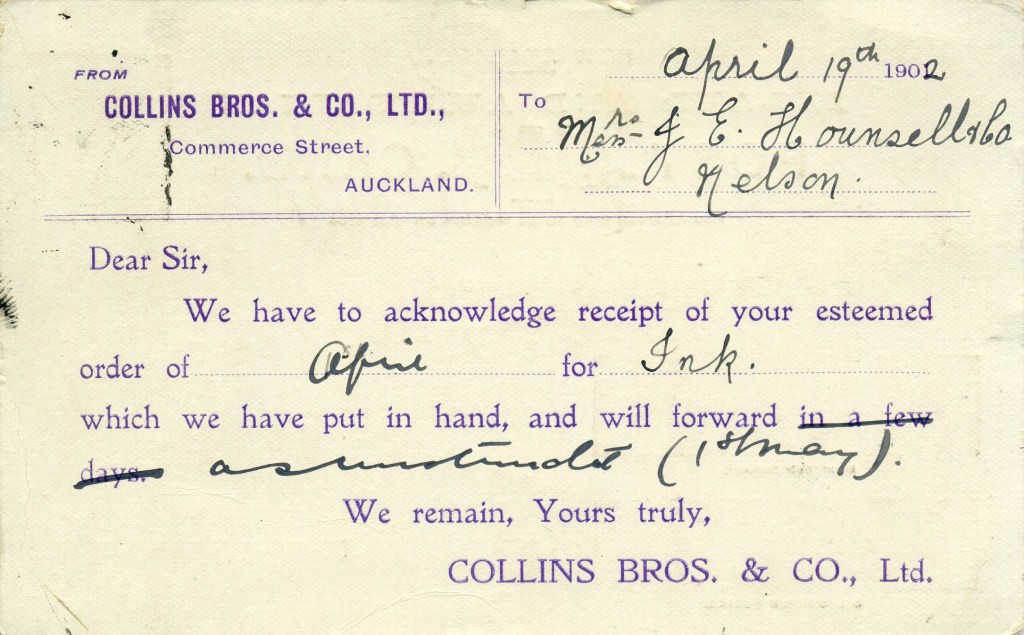 FROM
COLLINS BROS. & CO., LTD.,
Commerce Street,
AUCKLAND.
April 19th 1902
To
Messrs J E. Hounsell & Co
Nelson.
Dear Sir,
We have to acknowledge receipt of your esteemed
order of April for Ink.
which we have put in hand, and will forward in a few
days. as instructed (1st May).
We remain, Yours truly,
COLLINS BROS. & CO., Ltd.